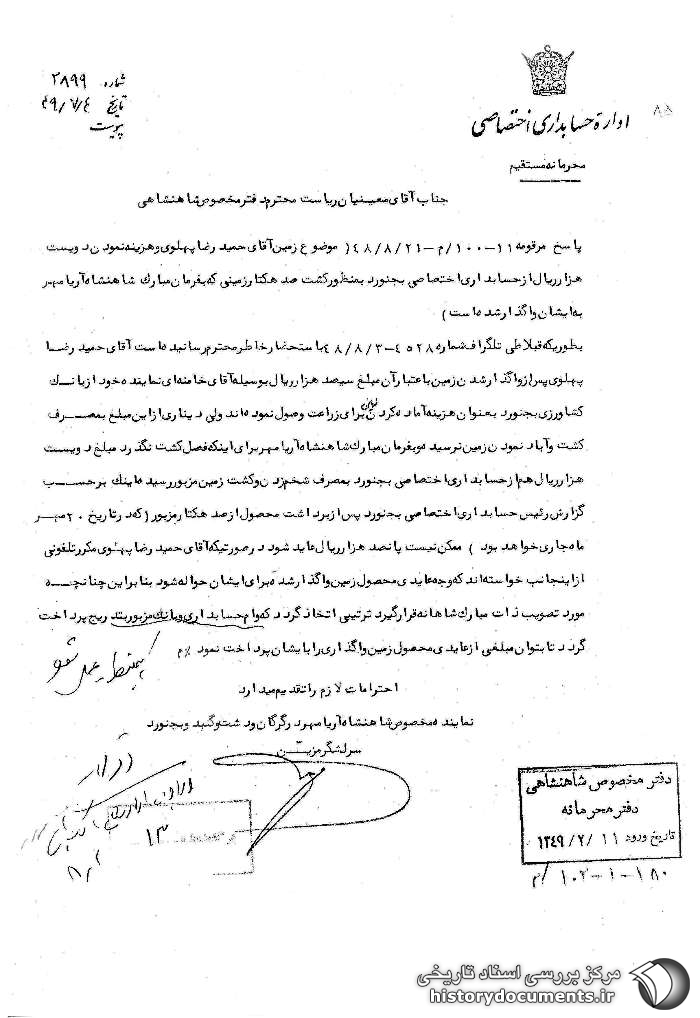 شماره ۲۸۹۹
تاریخ ۴۹/۷/۴
پیوست
۸۸
اداره حسابداری اختصاصی
محرمانه مستقیم
جناب آقای معینیان ریاست محترم دفتر مخصوص شاهنشاهی
پاسخ مرقومه ۱۱-۱۰۰/م-۴۸/۸/۲۱ ( موضوع زمین آقای حمید رضا پهلوی و هزینه نمودن دویست
هزار ریال از حسابداری اختصاصی بجنورد بمنظور کشت صد هکتار زمینی که بفرمان مبارک شاهنشاه آریامهر
به ایشان واگذار شده است )
بطوریکه قبلا طی تلگراف شماره ۴۵۲۸-۴۸/۸/۳ باستحضار خاطر محترم رسانیده است آقای حمید رضا
پهلوی پس از واگذار شدن زمین باعتبار آن مبلغ سیصد هزار ریال بوسیله آقای خامنه ای نماینده خود از بانک
کشاورزی بجنورد بعنوان هزینه آماده کردن زمین برای زراعت وصول نموده اند ولی دیناری از این مبلغ بمصرف
کشت و آباد نمودن زمین نرسیده و بفرمان مبارک شاهنشاه آریامهر برای اینکه فصل کشت نگذرد مبلغ دویست
هزار ریال هم از حسابداری اختصاصی بجنورد بمصرف شخم زدن و کشت زمین مزبور رسیده اینک برحسب
گزارش رئیس حسابداری اختصاصی بجنورد پس از برداشت محصول از صد هکتار مزبور ( که در تاریخ ۲۰ مهر
ماه جاری خواهد بود ) ممکن نیست پانصد هزار ریال عاید شود در صورتیکه آقای حمید رضا پهلوی مکرر تلفونی
از اینجانب خواسته اند که وجه عایدی محصول زمین واگذار شده برای ایشان حواله شود بنابراین چنانچه
مورد تصویب ذات مبارک شاهانه قرار گیرد ترتیبی اتخاذ گردد که وام حسابداری و بانک مزبور بتدریج پرداخت
گردد تا بتوان مبلغی از عایدی محصول زمین واگذاری را بایشان پرداخت نمود م/
بهمین نحو عمل شود
احترامات لازم را تقدیم میدارد
نماینده مخصوص شاهنشاه آریامهر در گرگان و دشت و گنبد و بجنورد
سرلشگر مزین
۱۳
دفتر مخصوص شاهنشاهی
دفتر محرمانه
تاریخ ورود ۱۳۴۹/۷/۱۱
۱۸۰-۱-۱۰۲/م
مرکز بررسی اسناد تاریخی
historydocuments.ir